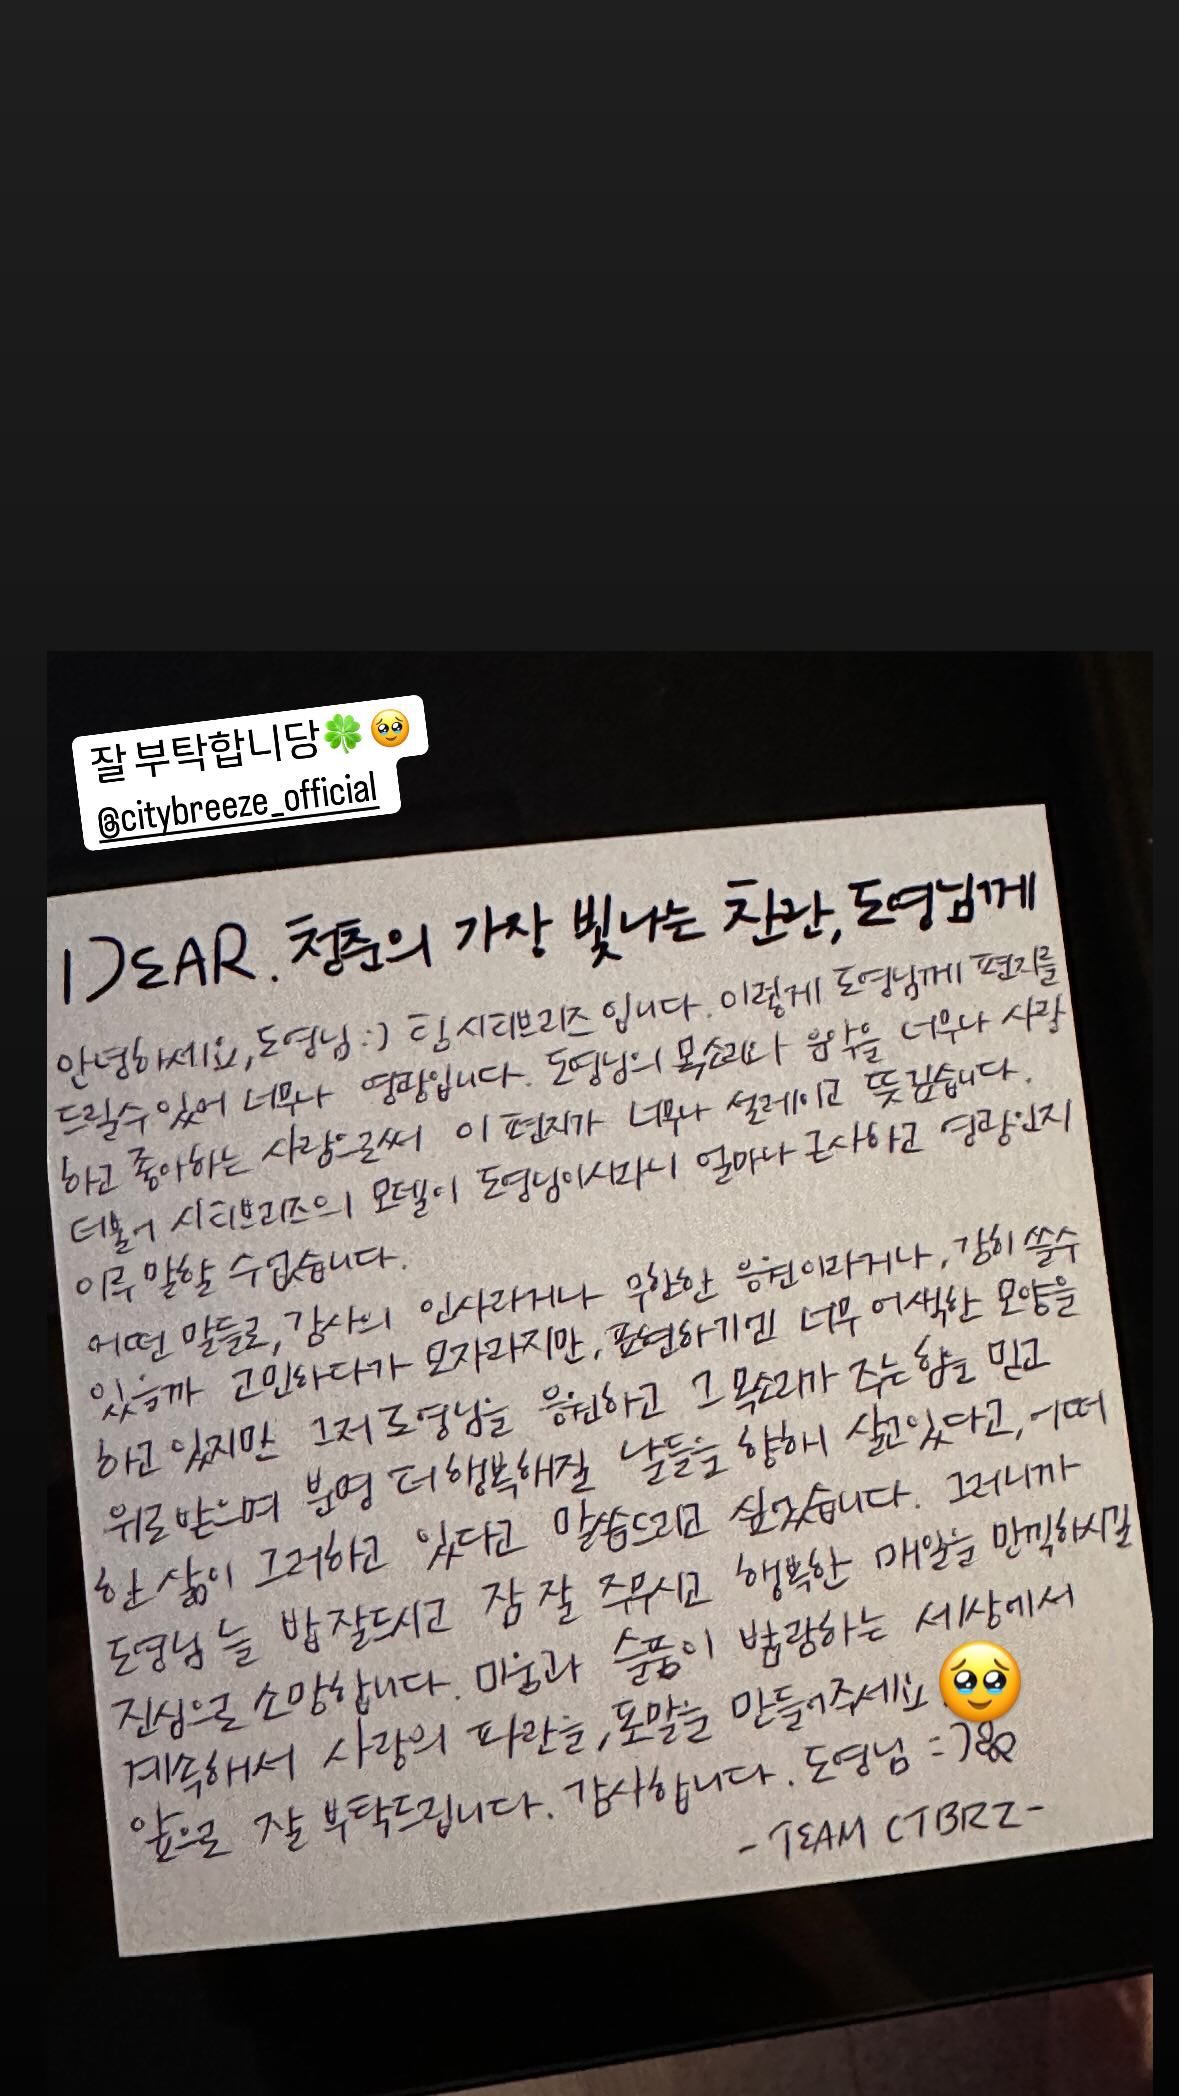 잘 부탁합니당🍀🥹
@citybreeze_official
DEAR. 청춘의 가장 빛나는 찬란, 도영님께
안녕하세요, 도영님 :) 팀 시티브리즈 입니다. 이렇게 도영님께 편지를
드릴수 있어 너무나 영광입니다. 도영님의 목소리와 음악을 너무나 사랑
하고 좋아하는 사람으로써 이 편지가 너무나 설레이고 뜻깊습니다.
더불어 시티브리즈의 모델이 도영님이시라니 얼마나 근사하고 영광인지
이루 말할 수 없습니다.
어떤 말들로, 감사의 인사라거나 무한한 응원이라거나, 감히 쓸수
있을까 고민하다가 모자라지만, 표현하기엔 너무 어색한 모양을
하고 있지만 그저 도영님을 응원하고 그 목소리가 주는 힘을 믿고
위로받으며 분명 더 행복해질 날들을 향해 살고있다고, 어떠
한 삶이 그러하고 있다고 말씀드리고 싶었습니다. 그러니까
도영님 늘 밥 잘드시고 잠 잘 주무시고 행복한 매일을 만끽하시길
진심으로 소망합니다. 미움과 슬픔이 범람하는 세상에서
계속해서 사랑의 파란을, 포말을 만들어주세요 🥹
앞으로 잘 부탁드립니다. 감사합니다. 도영님 =)
- TEAM CTBRZ -